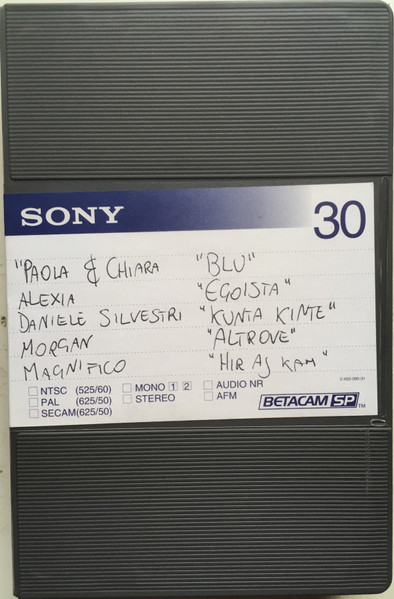 SONY 30
"PAOLA & CHIARA "BLU"
ALEXIA "EGOISTA"
DANIELE SILVESTRI "KUNTA KINTE"
MORGAN "ALTROVE"
MAGNIFICO "HIR AJ KAM"
NTSC (525/60) MONO 1 2 AUDIO NR
PAL (625/50) STEREO AFM
SECAM(625/50) BETACAM SP TM